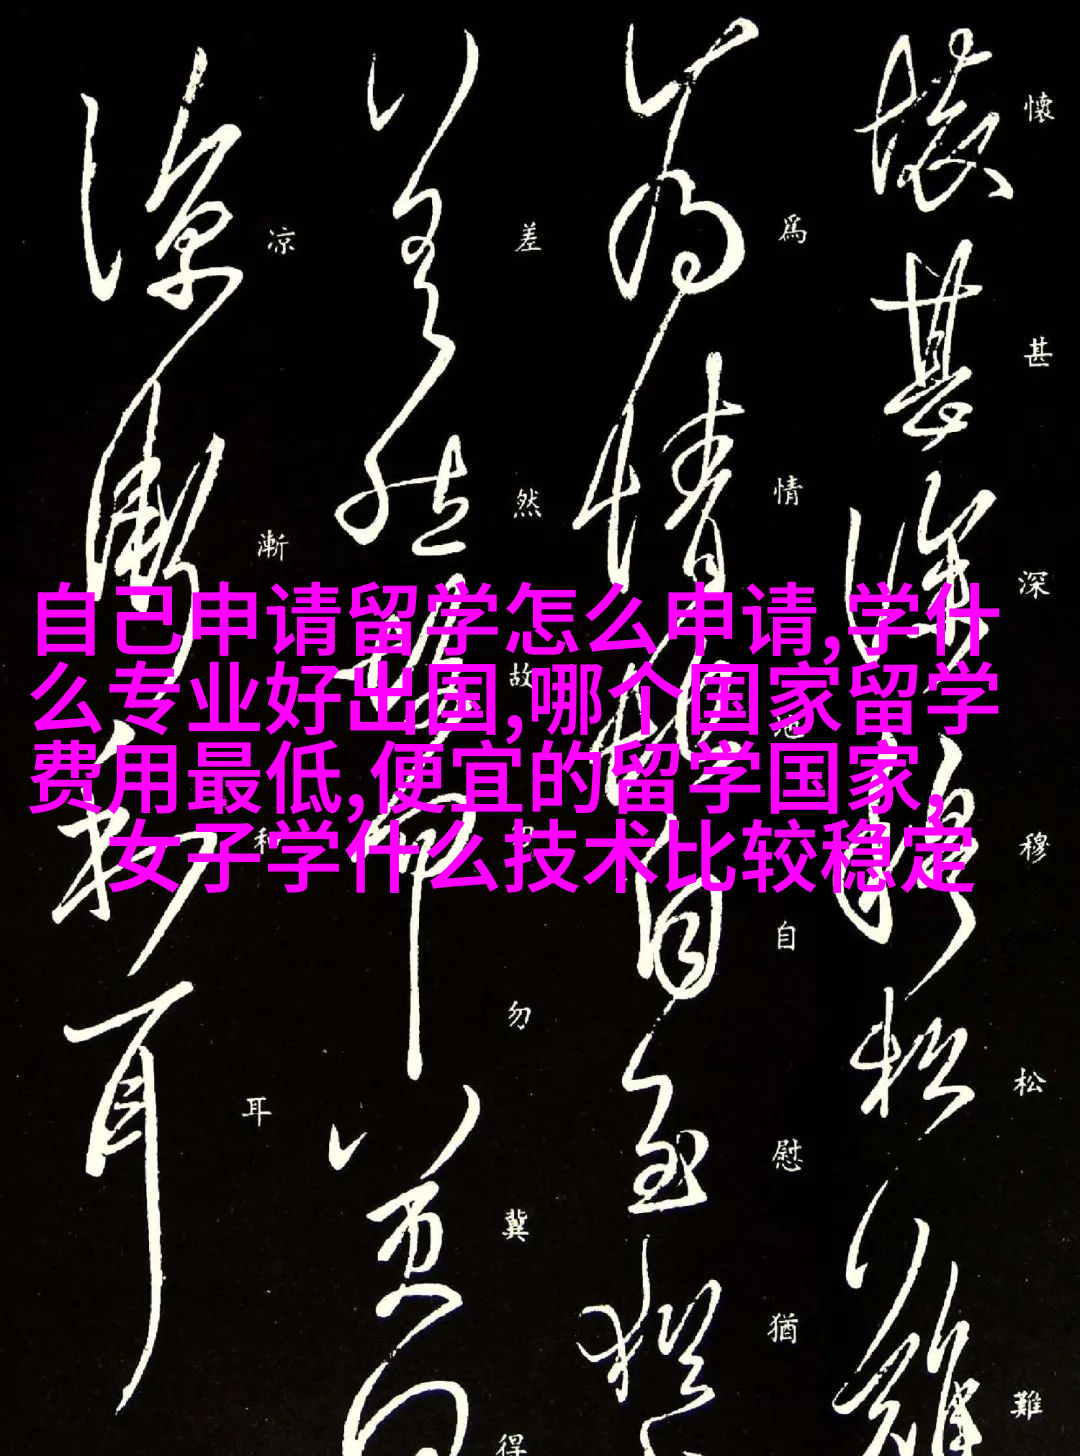 自己申请留学怎么申请,学什
么专业好出国,哪个国家留学
费用最低,便宜的留学国家,
女子学什么技术比较稳定
懷甚深穆松難
爲情自慰猶
差然故勿冀得
凉漸和耳